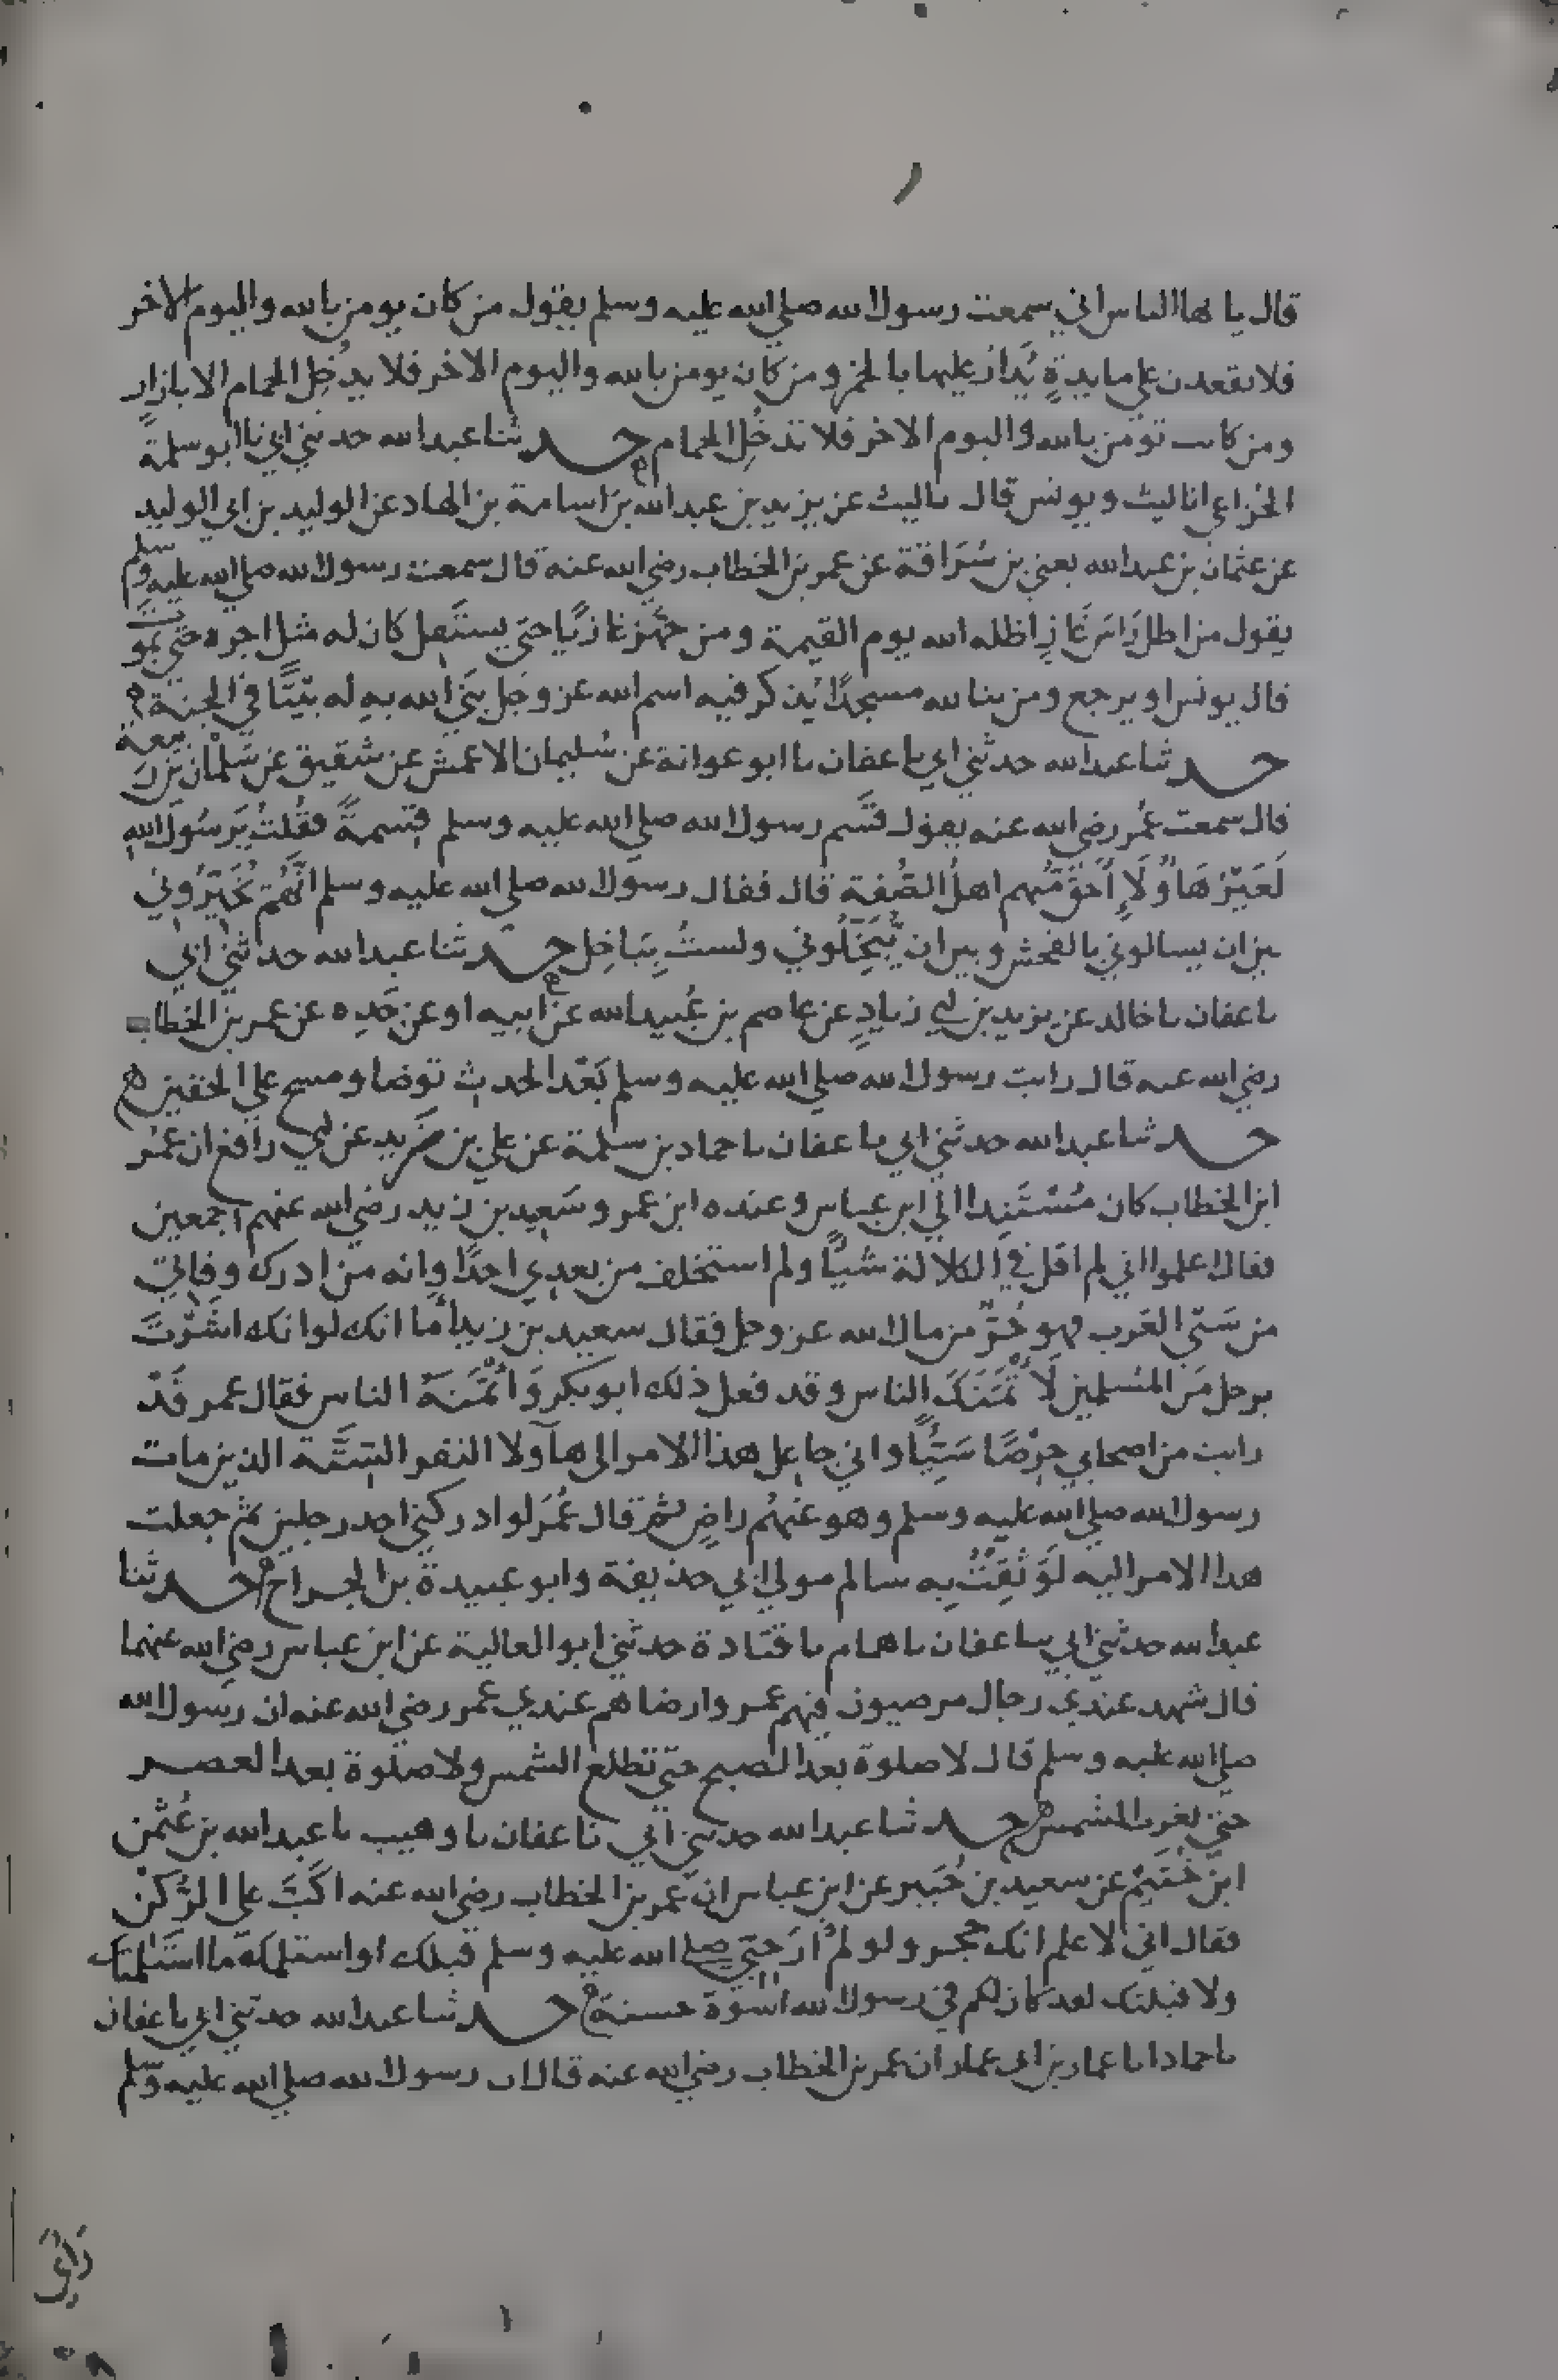 قال يا ايها الناس اني سمعت رسول الله صلي الله عليه وسلم يقول من كان يومن بالله واليوم الاخر
فلا يقعدن علي مايدةٍ يُدَارُ عليها بالخمر ومن كان يومن بالله واليوم الاخر فلا يدخُلِ الحمام الا بازار
ومن كانت تؤمن بالله واليوم الاخر فلا تدخُلِ الحمام حدثنا عبد الله حدثني ابي نا ابو سلمة
الخُزاعي انا ليث ويونس قال نا ليث عن يزيد بن عبد الله بن اسامة بن الهاد عن الوليد بن ابي الوليد
عن عثمان بن عبد الله يعني بن سُرَاقة عن عمر بن الخطاب رضي الله عنه قال سمعت رسول الله صلي الله عليه وسلم
يقول من اظل رَاسَ غَازٍ اظله الله يوم القيمة ومن جهَّز غازيًا حتي يستَقِل كان له مثل اجره حتي يموت
قال يونس او يرجع ومن بنا لله مسجدًا يُذكر فيه اسم الله عز وجل بَنَي الله به له بَيْتًا في الجنة
حدثنا عبد الله حدثني ابي نا عفان نا ابو عوانة عن سُليمان الاعمش عن شقيق عن سَلْمان بن ربيعة
قال سمعت عُمر رضي الله عنه يقول قَسَم رسول الله صلي الله عليه وسلم قِسمةً فقُلتُ يَرسُولَ الله
لَغَيْرُ هَاؤُلَاءِ اَحَقُّ مِنهم اهلُ الصُّفة قال فقال رسول الله صلي الله عليه وسلم انَّكُم تُخَيِّرُوني
بين ان يسالوني بالفحش وبين ان يُبَخِّلُوني ولستُ بِبَاخِل حدثنا عبد الله حدثني ابي
نا عفان نا خالد عن يزيد بن ابي زيادٍ عن عاصم بن عُبيد الله عن ابيه او عن جَدِه عن عمر بن الخطاب
رضي الله عنه قال رايت رسول الله صلي الله عليه وسلم بَعْدَ الحدث توضا ومسح علي الخفين
حدثنا عبد الله حدثني ابي نا عفان نا حماد بن سلمة عن علي بن زيد عن ابي رافع ان عُمَر
ابن الخطاب كان مُسْتَنِدا الي ابن عباس وعنده ابن عمر وسَعِيد بن زيد رضي الله عنهم اجمعين
فقال اعلموا اني لم اقل في الكلالة شيًا ولم استخلف من بعدِي احدًا وانه من ادرك وفاتي
من سَبْي العَرَب فهو حُرٌّ من مال الله عز وجل فقال سعيد بن زيد أما انك لو انك اشَرْتَ
برجل مِّنَ المُسلمين لَأْتَمَنَكَ الناس وقد فعل ذلك ابو بكر وَاْتَمَنَهُ الناس فقال عمر قَدْ
رايت من اصحابي حِرْصًا سَيِّئًا واني جاعِل هذا الامر الى هآولا النفر السِتَّة الذين مات
رسول الله صلي الله عليه وسلم وهو عَنْهُم راضٍ ثم قال عُمَر لو ادركني احد رجلين ثم جعلت
هذا الامر اليه لَوَثِقْتُ بِه سالم مولي ابي حذيفة وابو عبيدة بن الجراح حدثنا
عبد الله حدثني ابي نا عفان نا همام نا قتادة حدثني ابو العالية عن ابن عباس رضي الله عنهما
قال شهد عندي رجال مرضيون فيهم عمر وارضاهم عندي عمر رضي الله عنه ان رسول الله
صلي الله عليه وسلم قال لا صلوة بعد الصبح حتي تطلع الشمس ولا صلوة بعد العصر
حتي تغرب الشمس حدثنا عبد الله حدثني ابي نا عفان نا وهيب نا عبد الله بن عُثْمن
ابن خُثَيْم عن سعيد بن جُبَير عن ابن عباس ان عمر بن الخطاب رضي الله عنه اكَبَّ علي الرُكنْ
فقال اني لاعلم انك حجر ولو لم ار حِبِّي صلي الله عليه وسلم قبلك او استلمك ما استَلمْتك
ولا قبلتك لقد كان لكم في رسول الله اسْوَة حسنة حدثنا عبد الله حدثني ابي نا عفان
نا حماد انا عمار بن ابي عمار ان عمر بن الخطاب رضي الله عنه قال ان رسول الله صلي الله عليه وسلم
رَاي